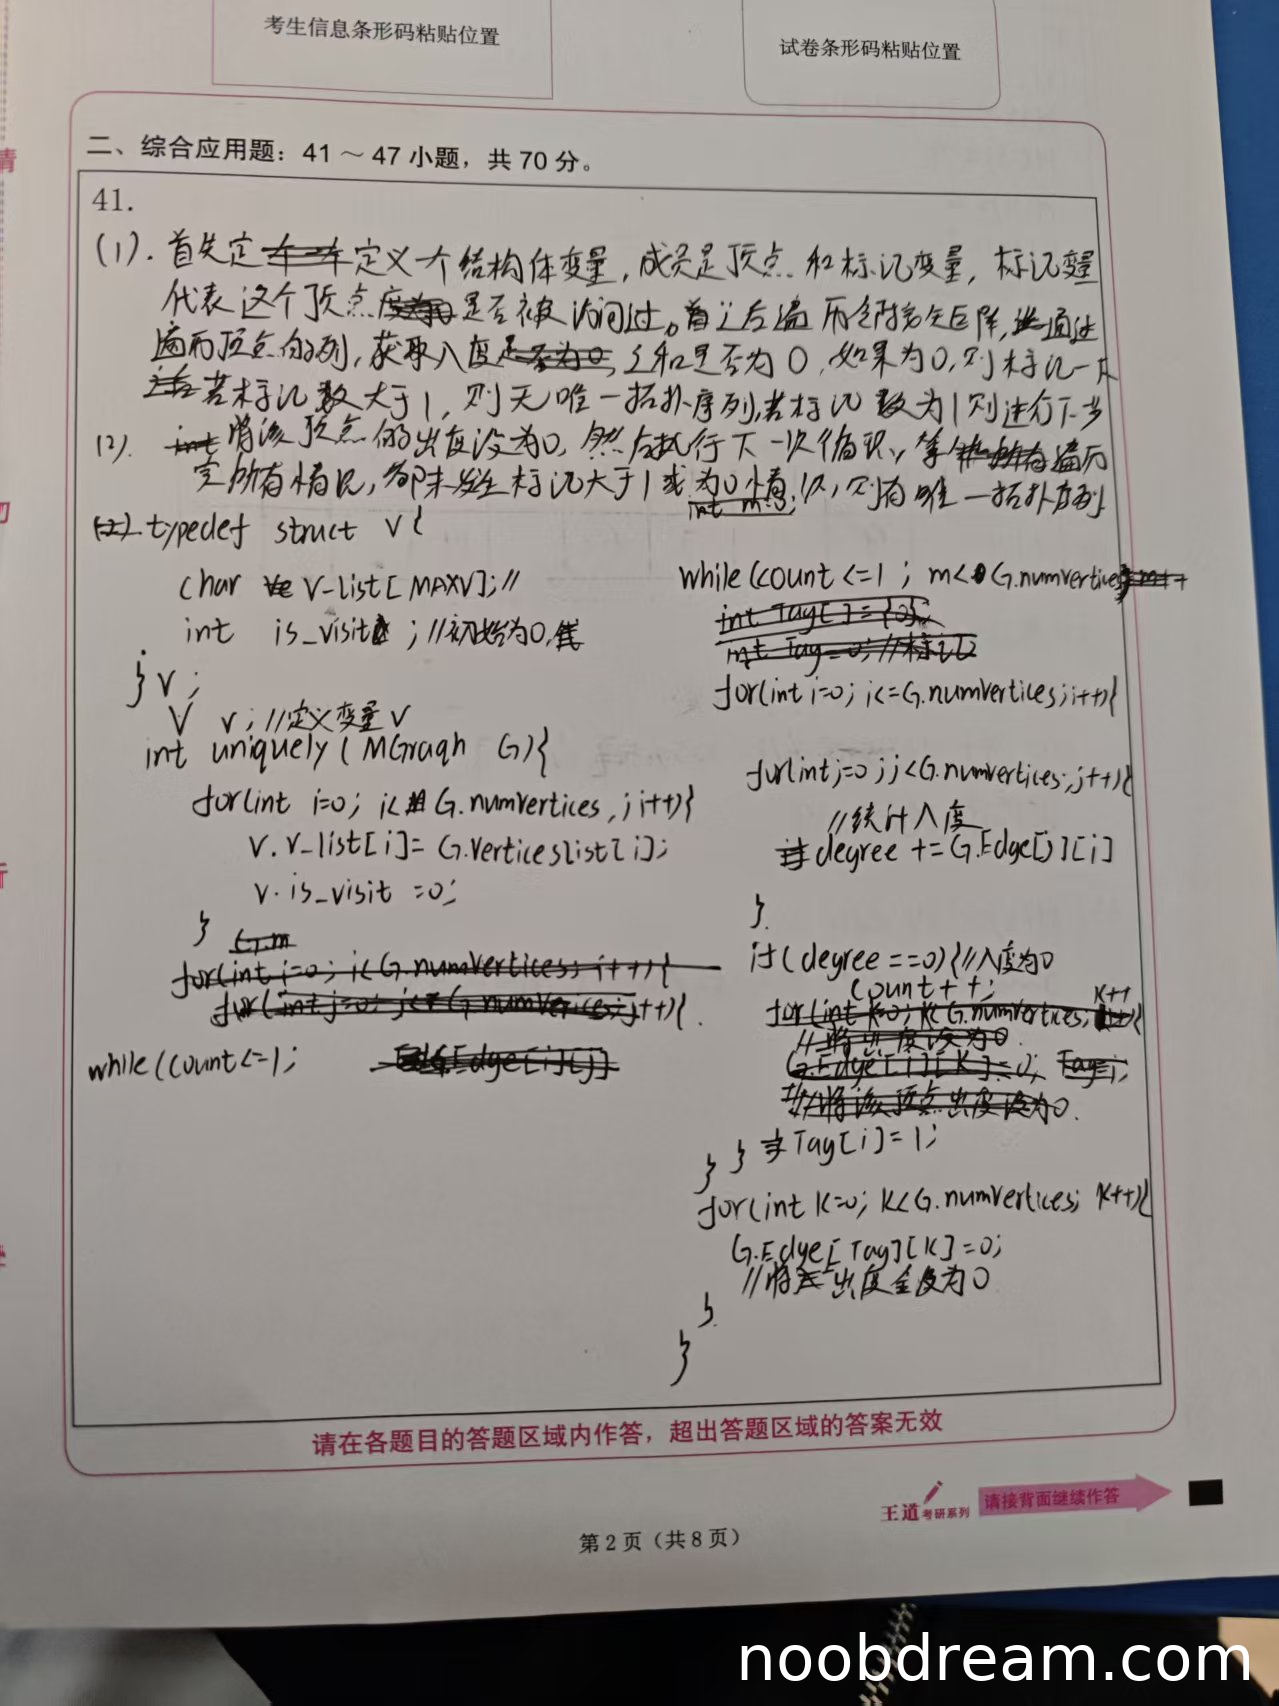 考生信息条形码粘贴位置
试卷条形码粘贴位置
二、综合应用题：41～47小题，共70分。
41.
(1). 首先定定义一个结构体变量，成员是顶点和标记变量，标记变量
代表这个顶点是否被访问过。之后遍历邻接矩阵，通过
遍历顶点的列，获取入度之和是否为0，如果为0，则标记一下
若标记数大于1，则无唯一拓扑序列，若标记数为1则进行下步
(2). 将该顶点的出度设为0，然后执行下一次循环，等遍历
完所有情况，都未发生标记大于1或为0情况，则有唯一拓扑序列
typedef struct V{
char V-list[MAXV];//
int is_visit ;//初始为0,
}V;
V v;//定义变量V
int uniquely(MGraqh G){
for(int i=0; i< G.numvertices, ; i++){
v.v_list[i]= G.verticeslist[i];
v.is_visit =0;
}
while(count<=1;
int m=0;
while(count<=1 ; m< G.numvertices
for(int i=0; i<=G.numvertices;i++){
for(int j=0;j<G.numvertices;j++){
//统计入度
degree += G.Edge[j][i]
}
if(degree ==0){//入度为0
count++;
Tag[i]=1;
} }
for(int k=0; k<G.numvertices; k++){
G.Edge[Tag][k]=0;
//将出度全设为0
}
}
请在各题目的答题区域内作答，超出答题区域的答案无效
王道考研系列
请接背面继续作答
第2页（共8页）
noobdream.com